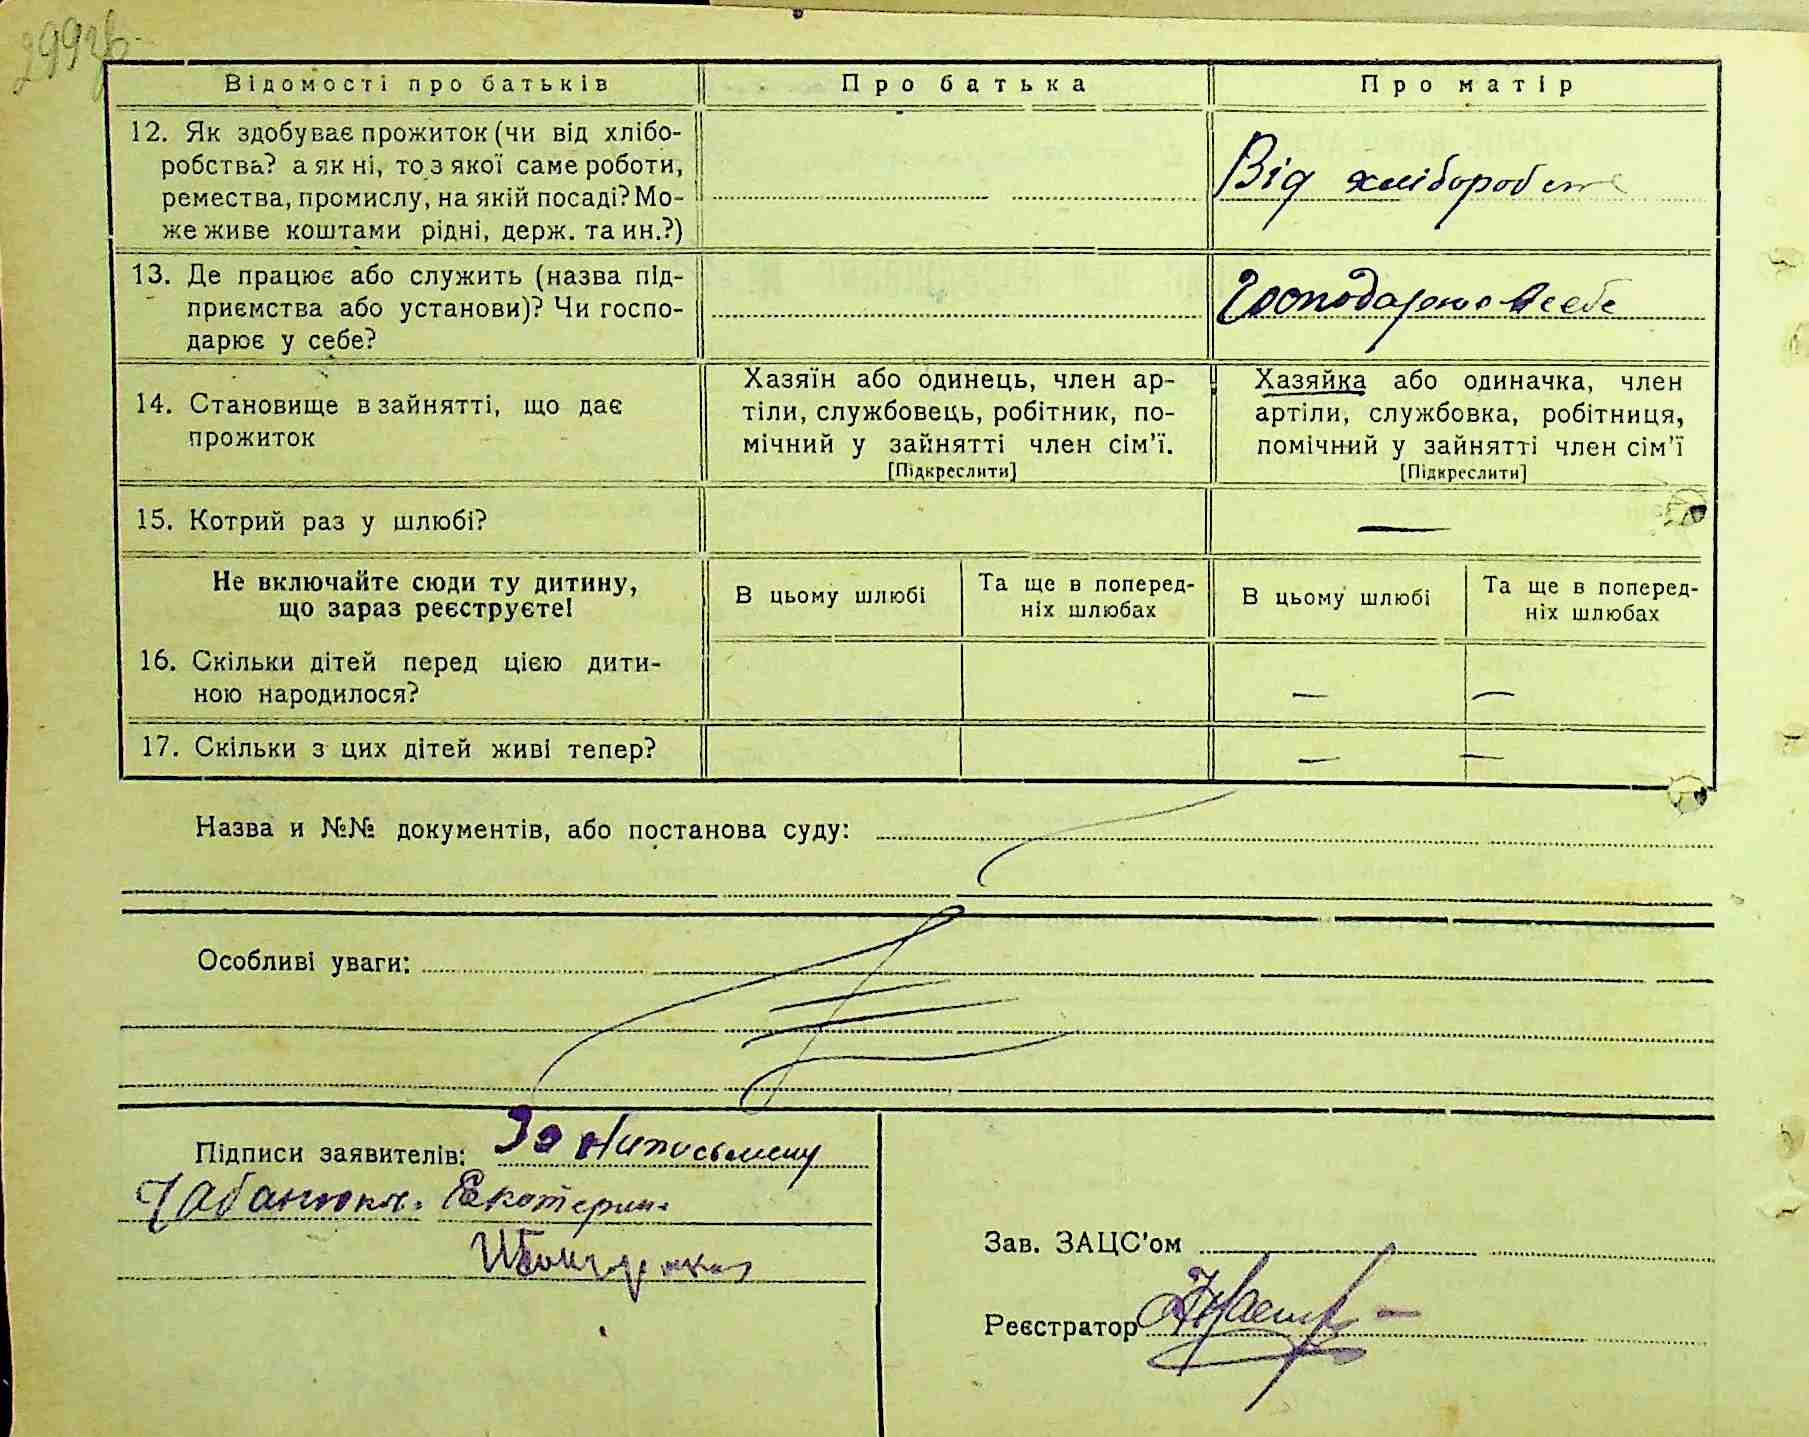 299зв.
Відомості про батьків
Про батька
Про матір
12. Як здобуває прожиток (чи від хлібо-
робства? а як ні, то з якої саме роботи,
ремества, промислу, на якій посаді? Мо-
же живе коштами рідні, держ. та ин.?)
Від
13. Де працює або служить (назва під-
приємства або установи)? Чи госпо-
дарює у себе?
себе
14. Становище в зайнятті, що дає
прожиток
Хазяїн або одинець, член ар-
тіли, службовець, робітник, по-
мічний у зайнятті член сім'ї.
[Підкреслити]
Хазяйка або одиначка, член
артіли, службовка, робітниця,
помічний у зайнятті член сім'ї
[Підкреслити]
15. Котрий раз у шлюбі?
—
Не включайте сюди ту дитину,
що зараз реєструєте!
В цьому шлюбі
Та ще в поперед-
ніх шлюбах
В цьому шлюбі
Та ще в поперед-
ніх шлюбах
16. Скільки дітей перед цією дити-
ною народилося?
— —
17. Скільки з цих дітей живі тепер?
— —
Назва и №№ документів, або постанова суду:
Особливі уваги:
Підписи заявителів: За
Зав. ЗАЦС'ом
Реєстратор